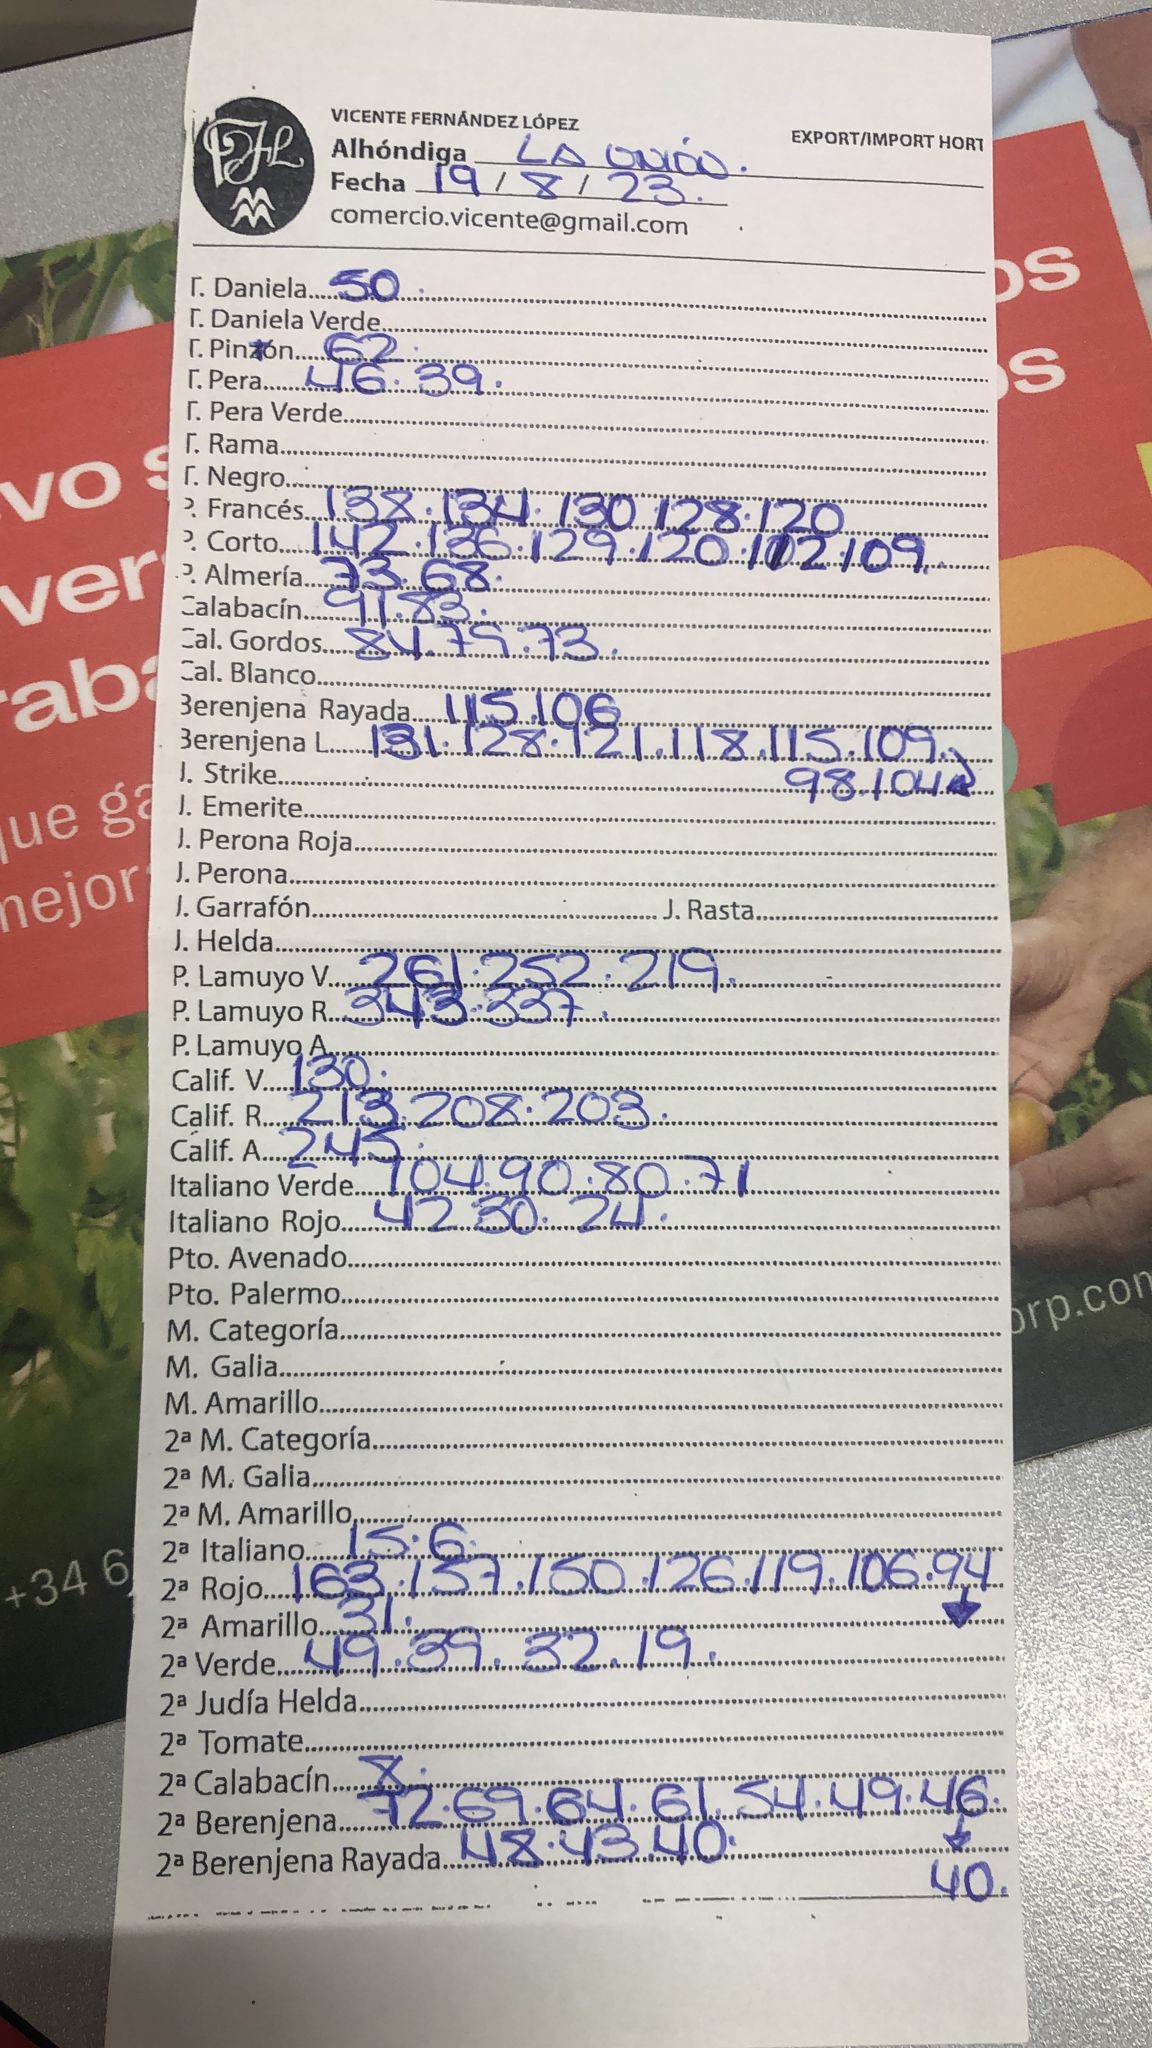 VICENTE FERNÁNDEZ LÓPEZ
EXPORT/IMPORT HORT
Alhóndiga LA UNIÓN.
Fecha 19/8/23.
comercio.vicente@gmail.com
T. Daniela 50.
T. Daniela Verde
T. Pinzón 62.
T. Pera 46.39.
T. Pera Verde
T. Rama
T. Negro
P. Francés 138.134.130.128.120
P. Corto 142.136.129.120.112.109.
P. Almería 73.68.
Calabacín 91.83.
Cal. Gordos 84.79.73.
Cal. Blanco
Berenjena Rayada 115.106
Berenjena L 131.128.121.118.115.109.
J. Strike 98.104
J. Emerite
J. Perona Roja
J. Perona
J. Garrafón J. Rasta
J. Helda
P. Lamuyo V 261.252.219.
P. Lamuyo R 343.337.
P. Lamuyo A
Calif. V 130.
Calif. R 213.208.203.
Calif. A 245.
Italiano Verde 104.90.80.71
Italiano Rojo 42.30.24.
Pto. Avenado
Pto. Palermo
M. Categoría
M. Galia
M. Amarillo
2ª M. Categoría
2ª M. Galia
2ª M. Amarillo
2ª Italiano 15.6.
2ª Rojo 163.157.150.126.119.106.94
2ª Amarillo 31.
2ª Verde 49.39.32.19.
2ª Judía Helda
2ª Tomate
2ª Calabacín 8.
2ª Berenjena 72.69.64.61.54.49.46.
2ª Berenjena Rayada 48.43.40.
40.
vo s
ver
raba
que ga
mejor
+34 6
os
os
orp.com